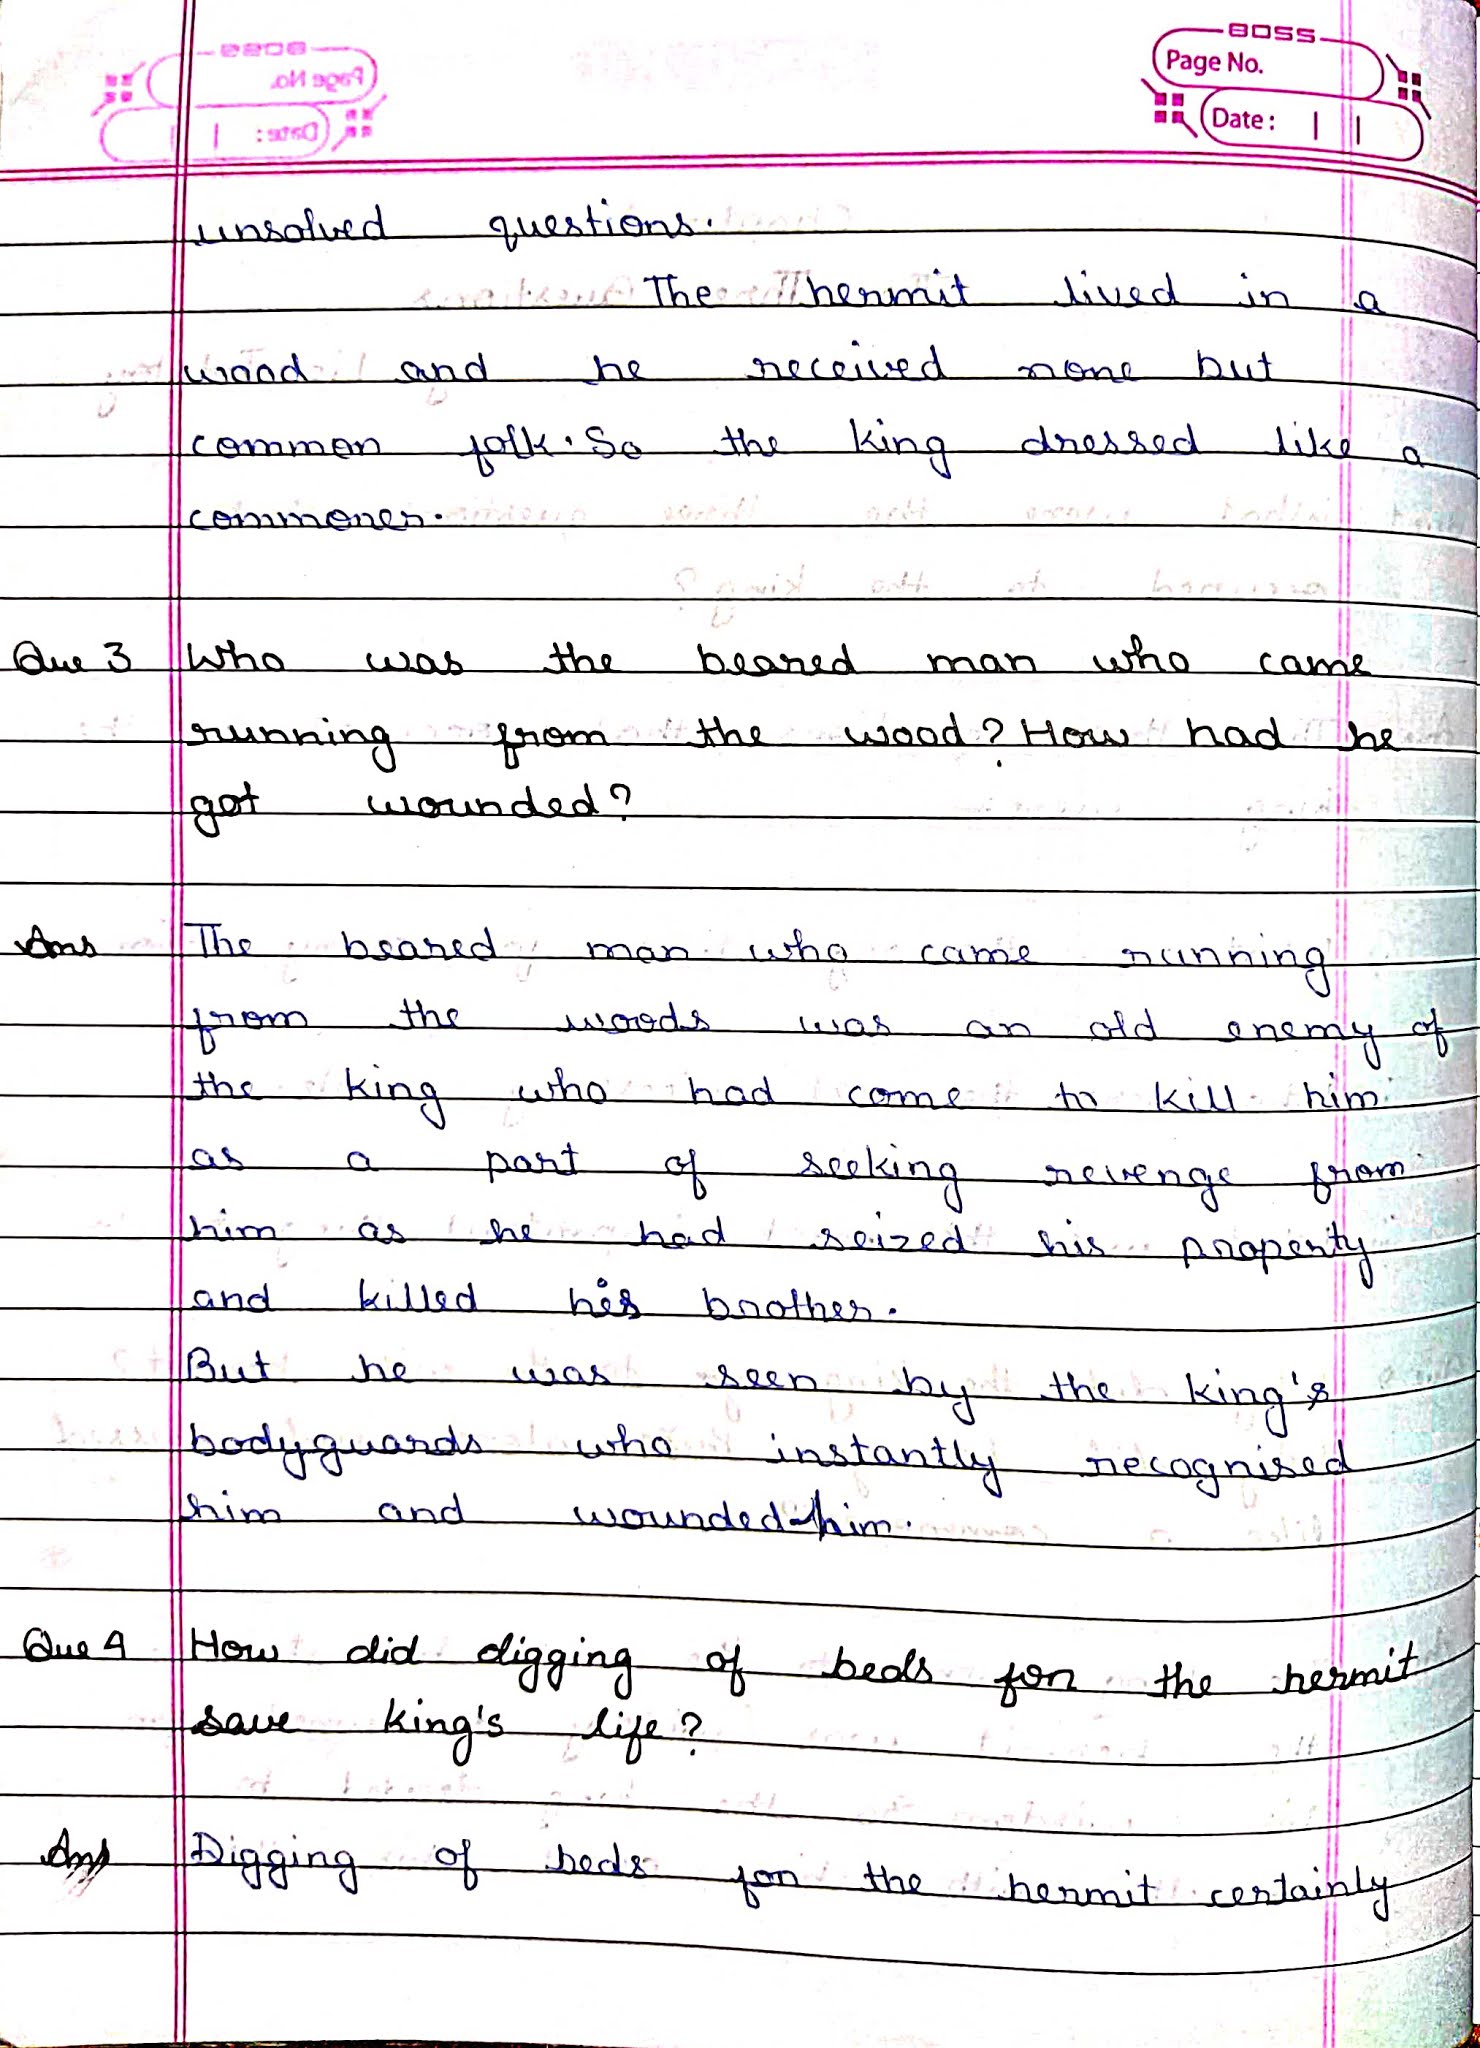 BOSS
Page No.
Date:
unsolved questions.
The hermit lived in a
wood and he received none but
common folk. So the king dressed like a
commoner.
Que 3 Who was the beared man who came
running from the wood? How had he
got wounded?
Ans The beared man who came running
from the woods was an old enemy of
the king who had come to kill him
as a part of seeking revenge from
him as he had seized his property
and killed his brother.
But he was seen by the king's
bodyguards who instantly recognised
him and wounded him.
Que 4 How did digging of beds for the hermit
save king's life?
Ans Digging of beds for the hermit certainly